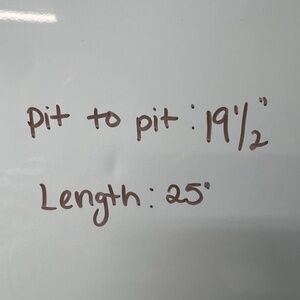 pit to pit: 19 1/2"
Length: 25"